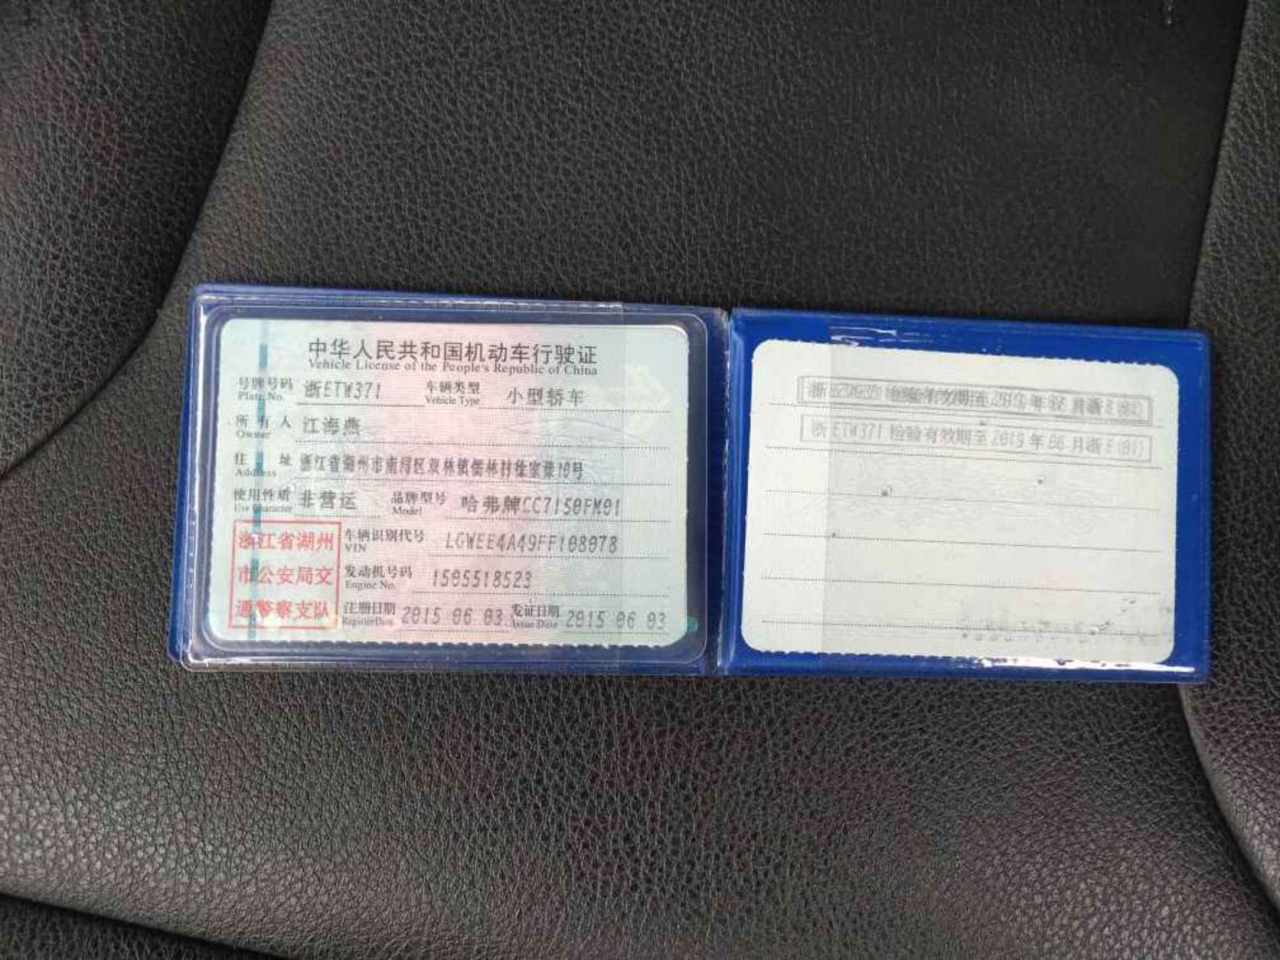 中华人民共和国机动车行驶证
Vehicle License of the People's Republic of China
号牌号码 浙ETW371 车辆类型 小型轿车
Plate No. Vehicle Type
所有人 江海燕
Owner
住址 浙江省湖州市南浔区双林镇儒林村徐家兜10号
Address
使用性质 非营运 品牌型号 哈弗牌CC7150FM01
Use Character Model
浙江省湖州
市公安局交
通警察支队
车辆识别代号 LGWEE4A49FF108078
VIN
发动机号码 1505518523
Engine No.
注册日期 2015 06 03 发证日期 2015 06 03
Register Date Issue Date
检验有效期至 年 月浙E(81)
浙ETW371 检验有效期至2019年06月浙E(81)